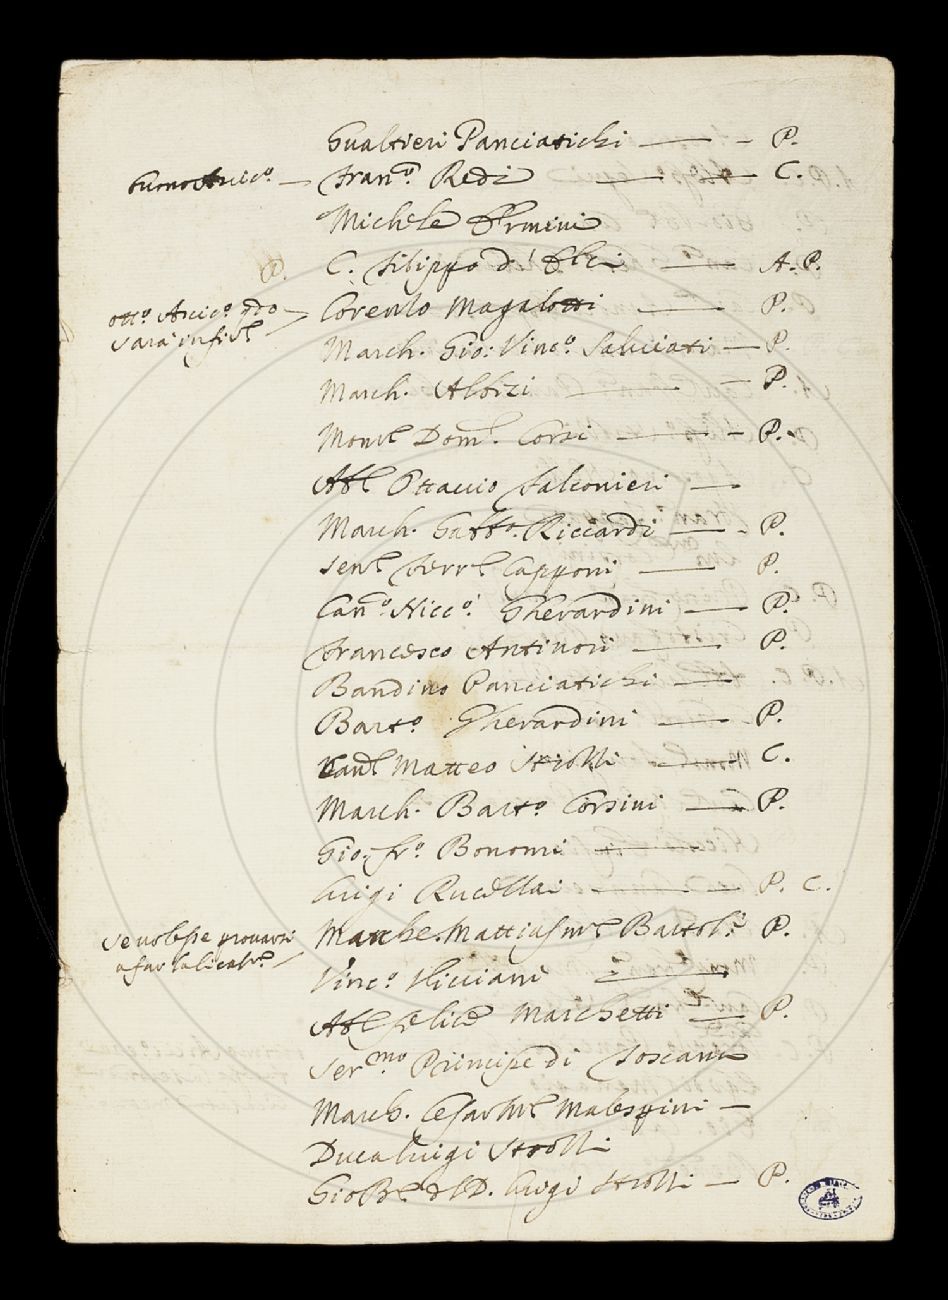 Gualtieri Panciatichi — P.
Fran.º Redi — C.
Michele Ermini
C. Filippo d' Elci — A. P.
P.
Lorenzo Magalotti — P.
ott.º Arcic.º qdo
sarà in
March. Gio: Vinc.º Salviati — P.
March. Albizi — P.
Mons.r Dom.º Corsi — P.
Ab.e Ottavio Falconieri —
March. Gabb.º Riccardi — P.
Sen.r Ferr.e Capponi — P.
Can.º Nicc.º Gherardini — P.
Francesco Antinori — P.
Bandino Panciatichi —
Bart.º Gherardini — P.
Matteo Strozzi — C.
March. Bart.º Corsini — P.
Gio: Fr.º Bonomi —
Luigi Rucellai — P. C.
se volesse provarsi
a far
March.e Mattias M.a Bartol.i P.
Vinc.º Viviani —
Ab.e Felice Marchetti — P.
Ser.mo Principe di Toscana
March. Malespini —
Duca Luigi Strozzi
Gio B.a del D. Luigi Strozzi — P.